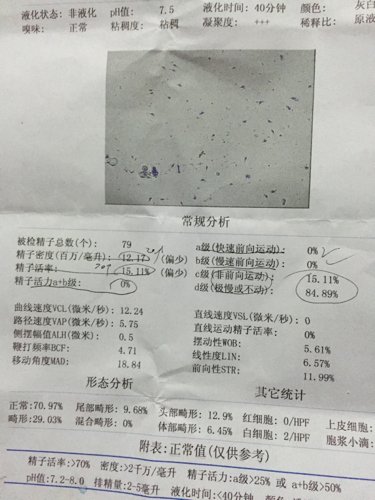 液化状态: 非液化 pH值: 7.5 液化时间: 40分钟 颜色: 灰白
嗅味: 正常 粘稠度: 粘稠 凝聚度: +++ 稀释比: 原液
常规分析
被检精子总数(个): 79 a级(快速前向运动): 0%
精子密度(百万/毫升): 12.17 (偏少) b级(慢速前向运动): 0%
精子活率: 15.11% (偏少) c级(非前向运动): 15.11%
精子活力a+b级: 0% d级(极慢或不动): 84.89%
曲线速度VCL(微米/秒): 12.24 直线速度VSL(微米/秒): 0
路径速度VAP(微米/秒): 5.75 直线运动精子活率: 0%
侧摆幅值ALH(微米): 0.5 摆动性WOB: 5.61%
鞭打频率BCF: 4.71 线性度LIN: 6.57%
移动角度MAD: 18.84 前向性STR: 11.99%
形态分析 其它统计
正常:70.97% 尾部畸形: 9.68% 头部畸形: 12.9% 红细胞: 0/HPF 上皮细胞:
畸形:29.03% 混合畸形: 0% 体部畸形: 6.45% 白细胞: 2/HPF 胞浆小滴:
附表:正常值(仅供参考)
精子活率:>70% 密度:>2千万/毫升 精子活力:a级>25% 或 a+b级>50%
pH值:7.2-8.0 排精量:2-5毫升 液化时间:<40分钟